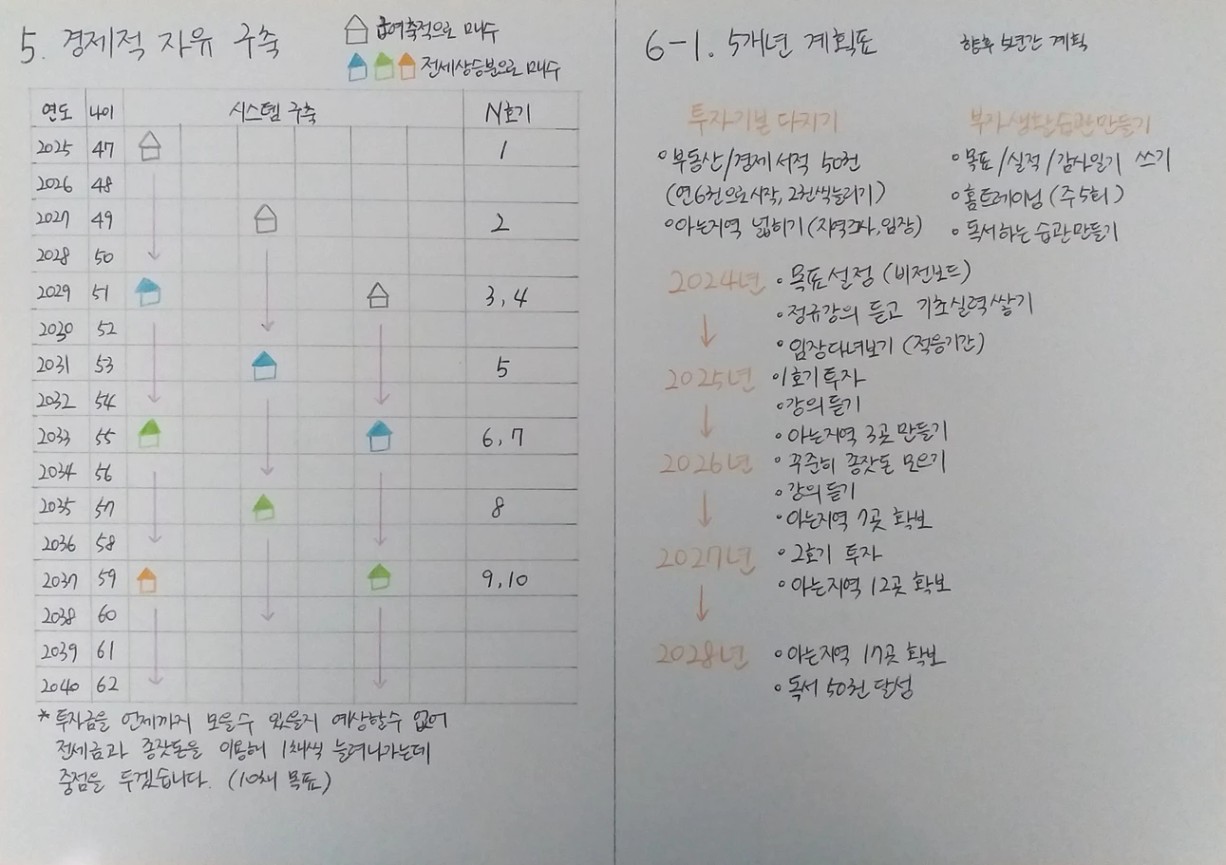 5. 경제적 자유 구축
급여축적으로 매수
전세상승분으로 매수
연도 나이 시스템 구축 N호기
2025 47 1
2026 48
2027 49 2
2028 50
2029 51 3, 4
2030 52
2031 53 5
2032 54
2033 55 6, 7
2034 56
2035 57 8
2036 58
2037 59 9, 10
2038 60
2039 61
2040 62
* 투자금을 언제까지 모을수 있을지 예상할수 없어
전세금과 종잣돈을 이용해 1채씩 늘려나가는데
중점을 두겠습니다. (10채 목표)
6-1. 5개년 계획표 향후 5년간 계획
투자기본 다지기
• 부동산/경제 서적 50권
(연6권으로시작, 2권씩늘리기)
• 아는지역 넓히기 (지역조사, 임장)
부자생활습관만들기
• 목표/실적/감사일기 쓰기
• 홈트레이닝 (주5회)
• 독서하는 습관만들기
2024년 • 목표설정 (비전보드)
• 정규강의 듣고 기초실력쌓기
• 임장다녀보기 (적응기간)
2025년 •1호기투자
•강의듣기
• 아는지역 3곳 만들기
2026년 • 꾸준히 종잣돈 모으기
•강의듣기
•아는지역 7곳 확보
2027년 • 2호기 투자
• 아는지역 12곳 확보
2028년 • 아는지역 17곳 확보
• 독서 50권 달성